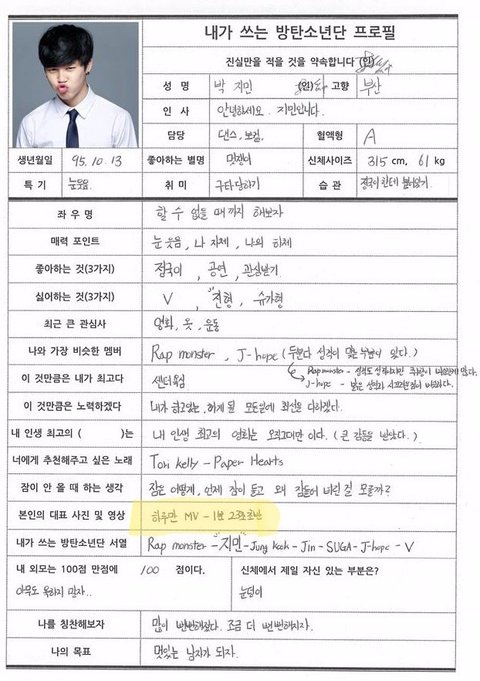 내가 쓰는 방탄소년단 프로필
진실만을 적을 것을 약속합니다 (인)
성 명 박 지민 (인) 고향 부산
인 사 안녕하세요. 지민입니다.
담당 댄스, 보컬 혈액형 A
생년월일 95. 10. 13 좋아하는 별명 멋쟁이 신체사이즈 315 cm, 61 kg
특 기 눈웃음 취 미 구타당하기 습 관 정국이한테
좌 우 명 할 수 없을 때까지 해보자
매력 포인트 눈웃음, 나 자체, 나의 하체
좋아하는 것(3가지) 정국이, 공연, 관심받기
싫어하는 것(3가지) V, 진형, 슈가형
최근 큰 관심사 영화, 옷, 운동
나와 가장 비슷한 멤버 Rap monster, J-hope (두분다 성격이 맞는 부분이 있다.)
Rap monster - 성격도 성격이지만
이것만큼은 내가 최고다 센터욕심
J-hope -
이것만큼은 노력하겠다 내가 하고있는, 하게 될 모든일에 최선을 다하겠다.
내 인생 최고의 ( )는 내 인생 최고의 영화는 오직그대만 이다. (큰 감동을 받았다.)
너에게 추천해주고 싶은 노래 Tori kelly - Paper Hearts
잠이 안 올 때 하는 생각 잠은 어떻게, 언제 잠이 들고 왜 잠들어 버린 걸 모를까?
본인의 대표 사진 및 영상 하루만 MV - 1분 2초
내가 쓰는 방탄소년단 서열 Rap monster - 지민 - Jung kook - Jin - SUGA - J-hope - V
내 외모는 100점 만점에 100 점이다. 신체에서 제일 자신 있는 부분은?
아무도 욕하지 말자.. 눈덩이
나를 칭찬해보자 많이 뻔뻔해졌다. 조금 더 뻔뻔해지자.
나의 목표 멋있는 남자가 되자.